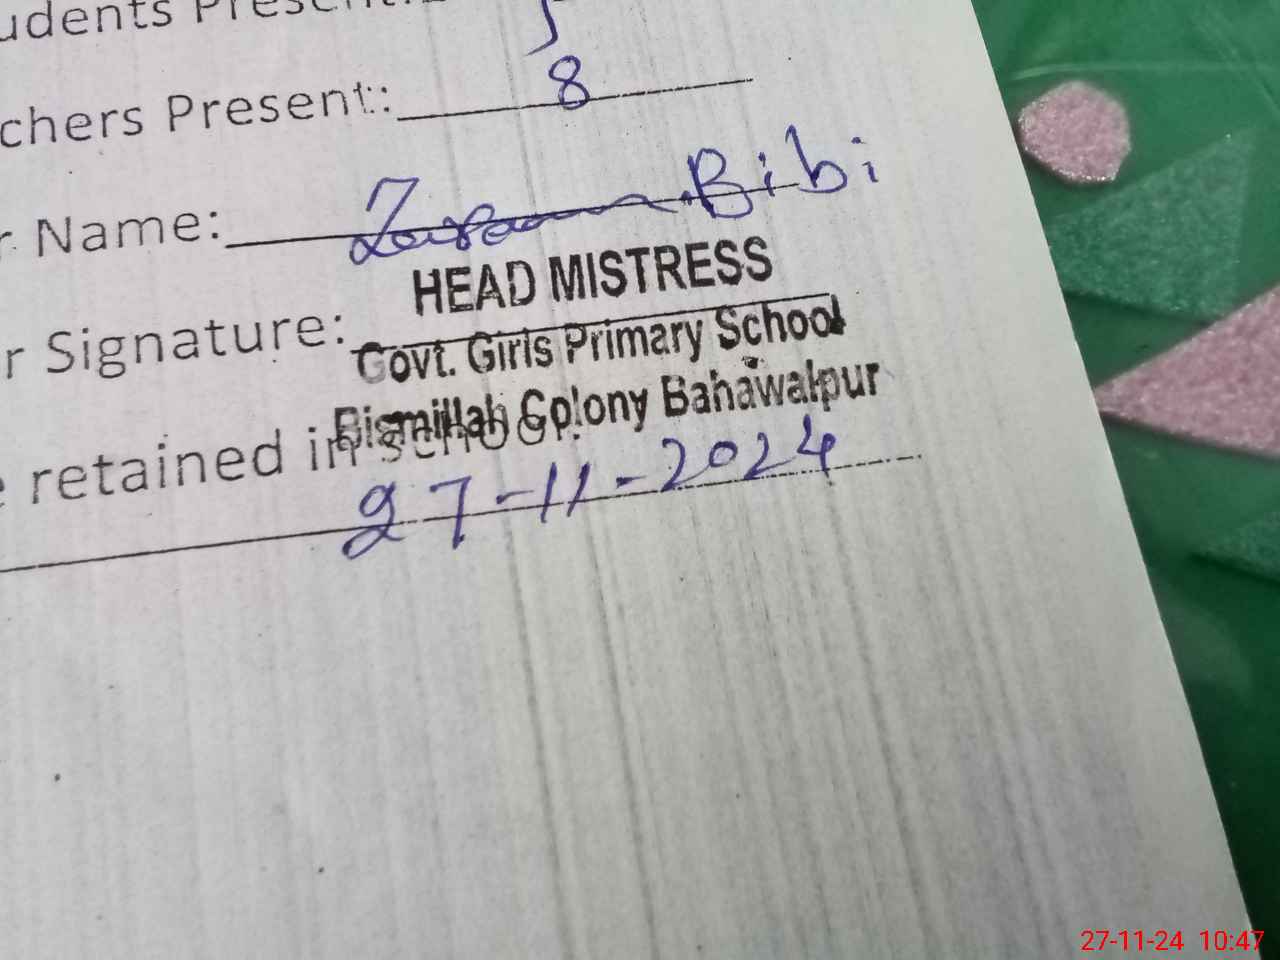 udents Present:
chers Present: 8
r Name: Bibi
HEAD MISTRESS
r Signature:
Govt. Girls Primary School
Bismillah Colony Bahawalpur
e retained in school.
27-11-2024
27-11-24 10:47